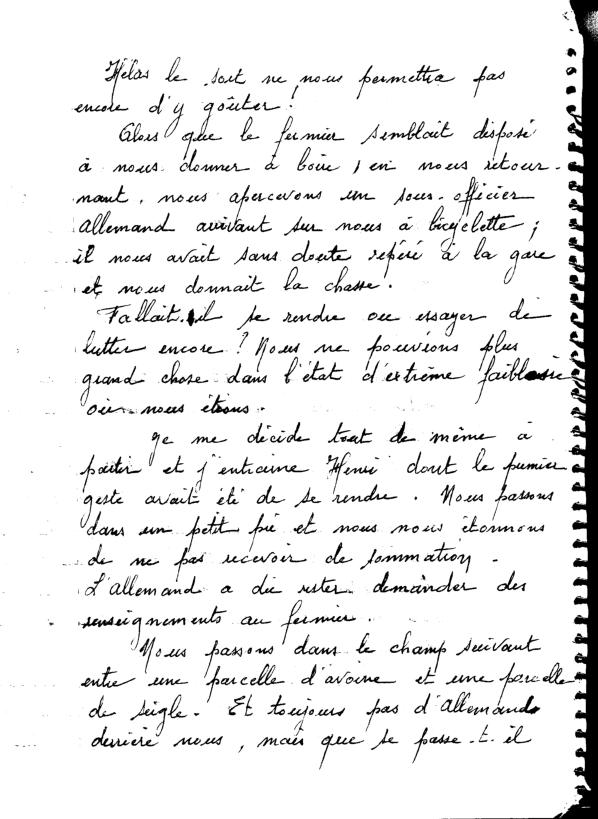 Hélas le sort ne nous permettra pas
encore d'y goûter !
Alors que le fermier semblait disposé
à nous donner à boire, en nous retour-
nant, nous apercevons un sous-officier
Allemand arrivant sur nous à bicyclette ;
il nous avait sans doute repéré à la gare
et nous donnait la chasse.
Fallait-il se rendre ou essayer de
lutter encore ? Nous ne pouvions plus
grand chose dans l'état d'extrême faiblesse
où nous étions.
Je me décide tout de même à
partir et j'entraîne Henri dont le premier
geste avait été de se rendre. Nous passons
dans un petit pré et nous nous étonnons
de ne pas recevoir de sommation.
L'allemand a dû rester demander des
renseignements au fermier.
Nous passons dans le champ suivant
entre une parcelle d'avoine et une parcelle
de seigle. Et toujours pas d'Allemands
derrière nous, mais que se passe-t-il